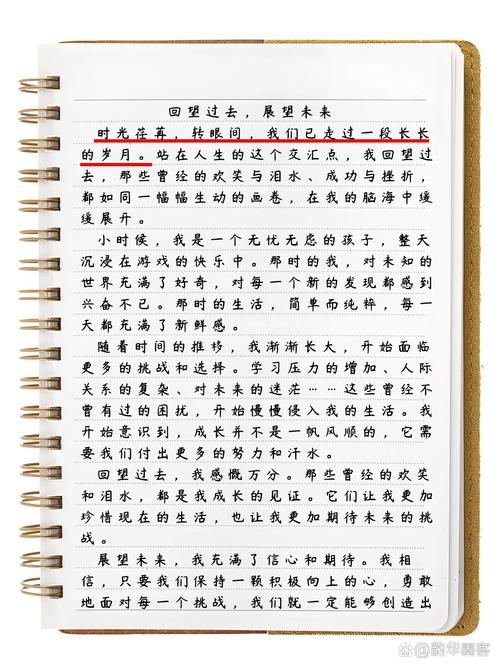 回望过去，展望未来
时光荏苒，转眼间，我们已走过一段长长
的岁月。站在人生的这个交汇点，我回望过
去，那些曾经的欢笑与泪水、成功与挫折，
都如同一幅幅生动的画卷，在我的脑海中缓
缓展开。
小时候，我是一个无忧无虑的孩子，整天
沉浸在游戏的快乐中。那时的我，对未知的
世界充满了好奇，对每一个新的发现都感到
兴奋不已。那时的生活，简单而纯粹，每一
天都充满了新鲜感。
随着时间的推移，我渐渐长大，开始面临
更多的挑战和选择。学习压力的增加、人际
关系的复杂、对未来的迷茫……这些曾经不
曾有过的困扰，开始慢慢侵入我的生活。我
开始意识到，成长并不是一帆风顺的，它需
要我们付出更多的努力和汗水。
回望过去，我感慨万分。那些曾经的欢笑
和泪水，都是我成长的见证。它们让我更加
珍惜现在的生活，也让我更加期待未来的挑
战。
展望未来，我充满了信心和期待。我相
信，只要我们保持一颗积极向上的心，勇敢
地面对每一个挑战，我们就一定能够创造出
韵华墨客